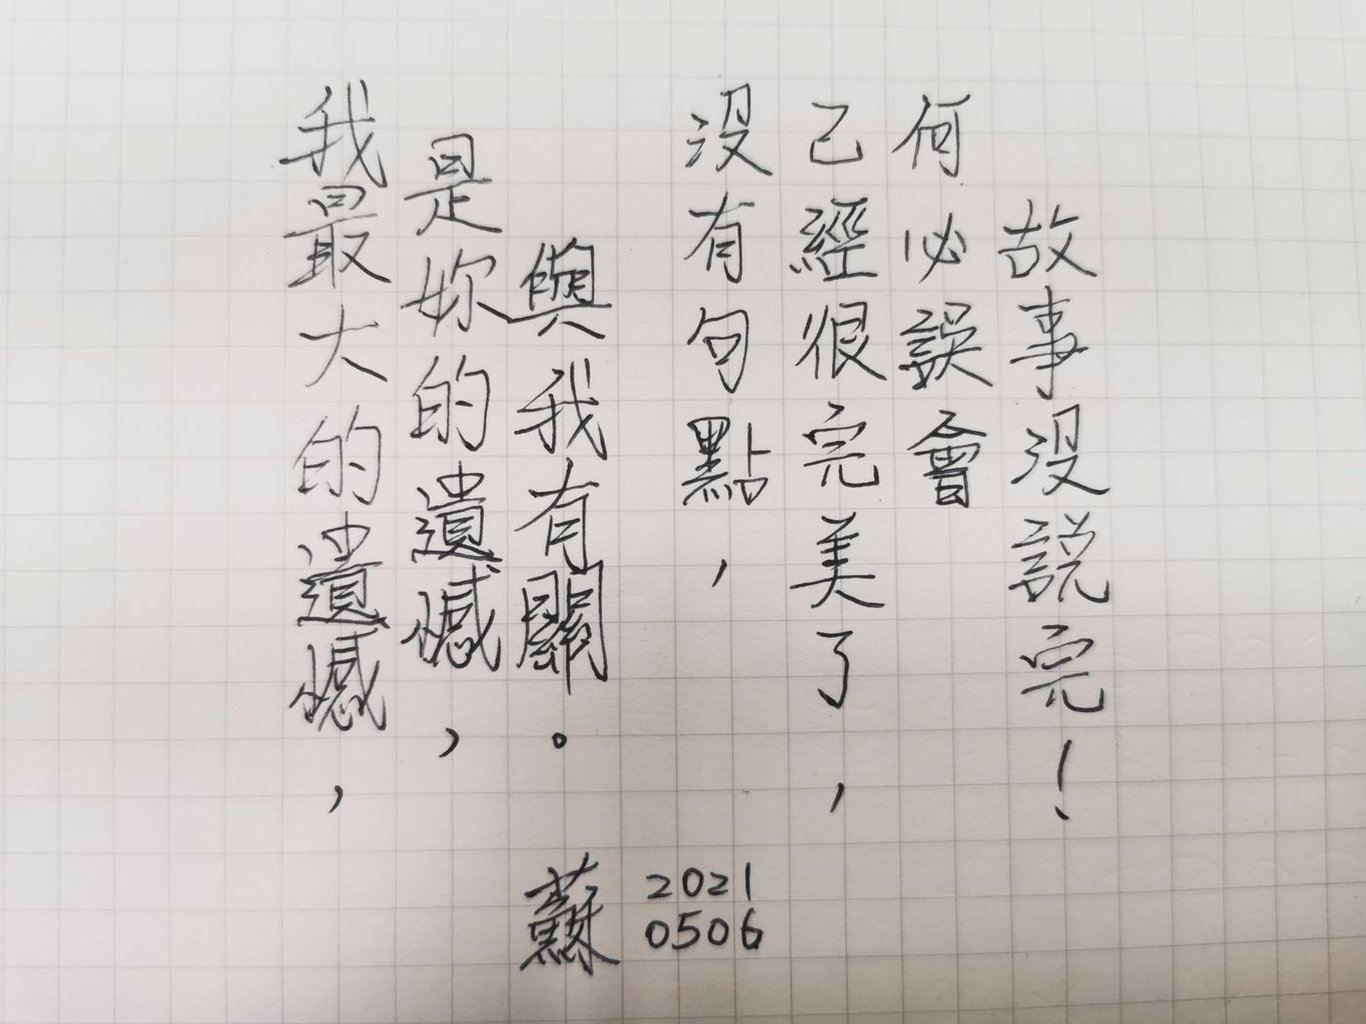 我最大的遺憾，
是妳的遺憾，
與我有關。
没有句點，
已經很完美了，
何必誤會
故事没説完！
蘇
2021
0506